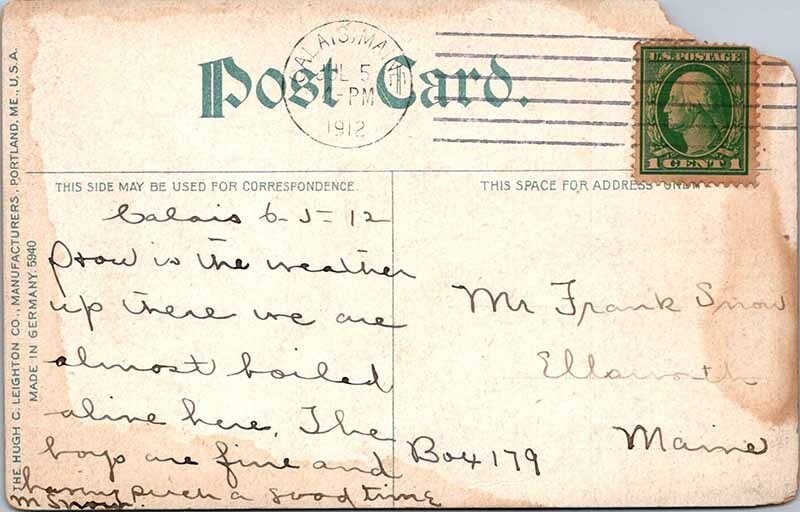 Post Card.
CALAIS, MAINE
JUL 5
-PM
1912
U.S. POSTAGE
1 CENT 1
THIS SIDE MAY BE USED FOR CORRESPONDENCE.
THIS SPACE FOR ADDRESS ONLY.
Calais 6-5-12
How is the weather
up there we are
almost boiled
alive here. The
boys are fine and
having such a good time
M Snow.
Mr Frank Snow
Ellsworth
Maine
Box 179
THE HUGH C. LEIGHTON CO., MANUFACTURERS, PORTLAND, ME., U.S.A.
MADE IN GERMANY. 5940